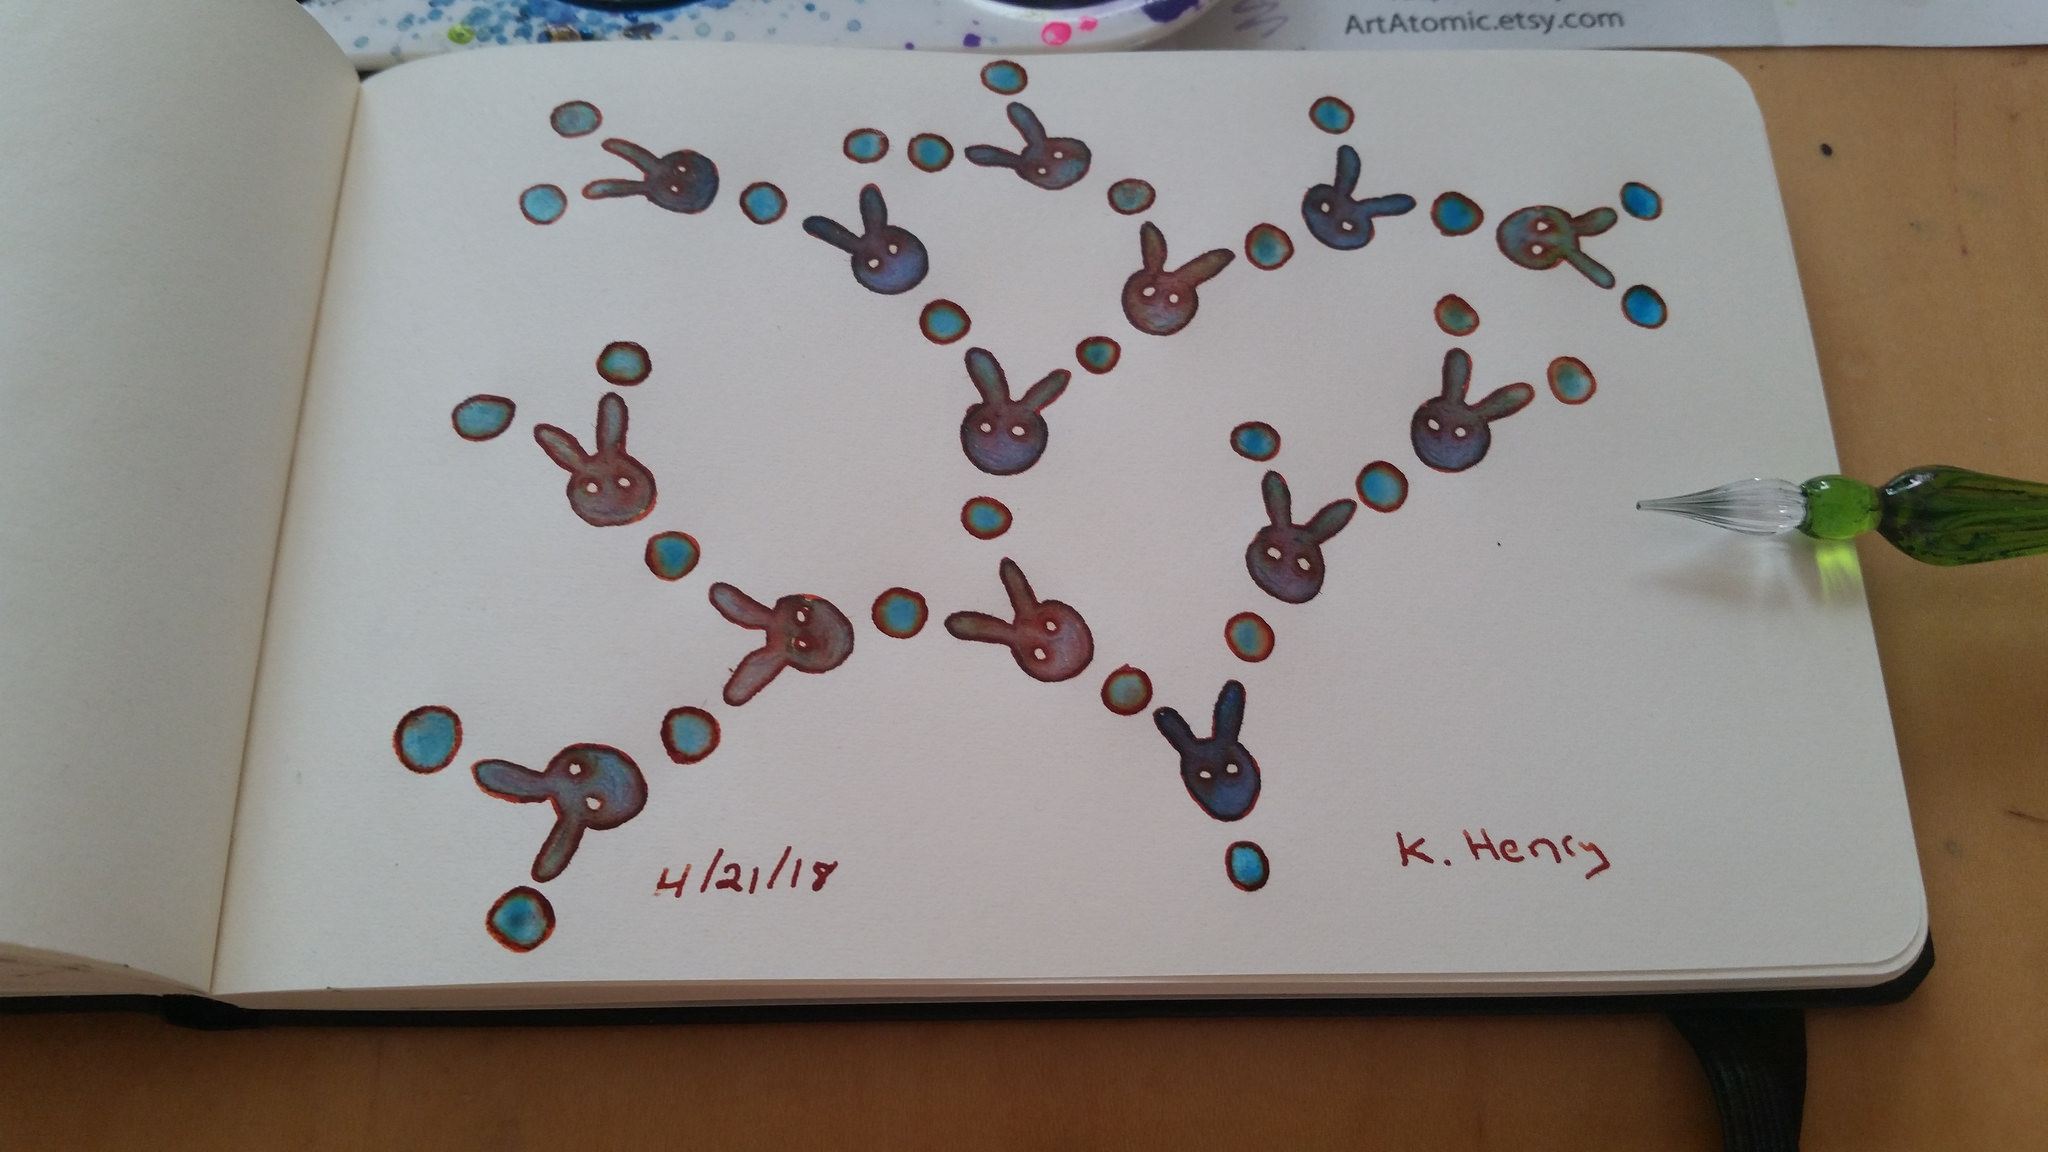 ArtAtomic.etsy.com
4/21/18
K. Henry